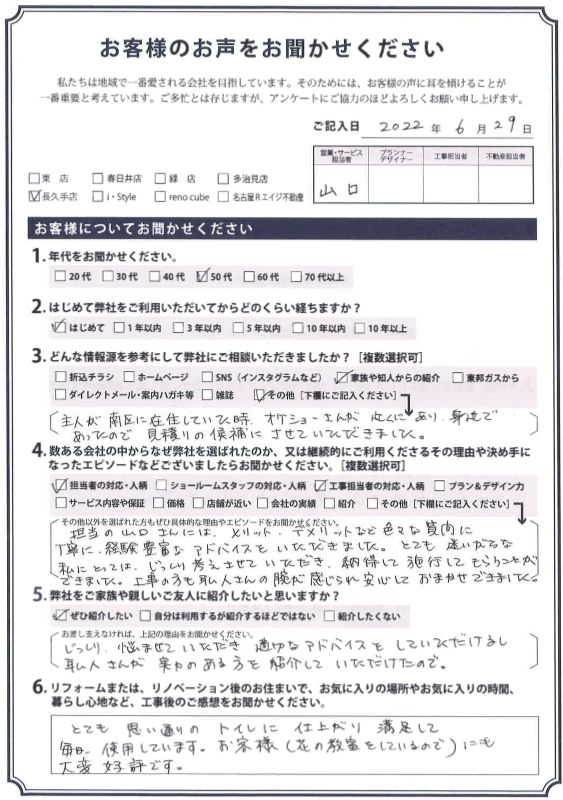 お客様のお声をお聞かせください
私たちは地域で一番愛される会社を目指しています。そのためには、お客様の声に耳を傾けることが
一番重要と考えています。ご多忙とは存じますが、アンケートにご協力のほどよろしくお願い申し上げます。
ご記入日 2022 年 6 月 29 日
営業・サービス担当者 プランナーデザイナー 工事担当者 不動産担当者
山口
□東 店 □春日井店 □緑 店 □多治見店
☑長久手店 □i・Style □reno cube □名古屋Rエイジ不動産
お客様についてお聞かせください
1. 年代をお聞かせください。
□20代 □30代 □40代 ☑50代 □60代 □70代以上
2. はじめて弊社をご利用いただいてからどのくらい経ちますか?
☑はじめて □1年以内 □3年以内 □5年以内 □10年以内 □10年以上
3. どんな情報源を参考にして弊社にご相談いただきましたか?[複数選択可]
□折込チラシ □ホームページ □SNS(インスタグラムなど) ☑家族や知人からの紹介 □東邦ガスから
□ダイレクトメール・案内ハガキ等 □雑誌 ☑その他[下欄にご記入ください]
主人が南区に在住していた時、オケショーさんが近くにあり、身近で
あったので見積りの候補にさせていただきました。
4. 数ある会社の中からなぜ弊社を選ばれたのか、又は継続的にご利用くださるその理由や決め手に
なったエピソードなどございましたらお聞かせください。[複数選択可]
☑担当者の対応・人柄 □ショールームスタッフの対応・人柄 ☑工事担当者の対応・人柄 □プラン&デザイン力
□サービス内容や保証 □価格 □店舗が近い □会社の実績 □紹介 □その他[下欄にご記入ください]
その他以外を選ばれた方もぜひ具体的な理由やエピソードをお聞かせください。
担当の山口さんには、メリット・デメリットなど色々な質問に
丁寧に、経験豊富なアドバイスをいただきました。とても迷いがちな
私にとっては、じっくり考えさせていただき、納得して施行してもらうことが
できました。工事の方も職人さんの腕が感じられ安心しておまかせできました。
5. 弊社をご家族や親しいご友人に紹介したいと思いますか?
☑ぜひ紹介したい □自分は利用するが紹介するほどではない □紹介したくない
お差し支えなければ、上記の理由をお聞かせください。
じっくり、悩ませていただき適切なアドバイスをしていただけるし
職人さんが実力のある方を紹介していただけたので。
6. リフォームまたは、リノベーション後のお住まいで、お気に入りの場所やお気に入りの時間、
暮らし心地など、工事後のご感想をお聞かせください。
とても思い通りのトイレに仕上がり満足して
毎日、使用しています。お客様(花の教室をしているので)にも
大変好評です。